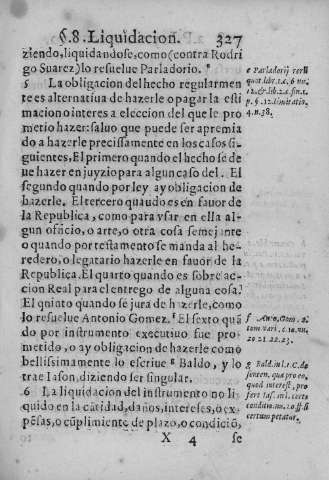 §.8. Liquidacion. 327
ziendo, liquidandose, como (contra Rodri
go Suarez) lo resuelue Parladorio. e
5 La obligacion del hecho regularmen
te es alternatiua de hazerle o pagar la esti
macion o interes a eleccion del que le pro
metio hazer: saluo que puede ser apremia
do a hazerle precissamente en los casos si-
guientes, El primero quando el hecho se de
ue hazer en juyzio para algun caso del. El
segundo quando por ley ay obligacion de
hazerle. El tercero quãdo es en fauor de
la Republica, como para vsar en ella al-
gun oficio, o arte, o otra cosa semejante
o quando por testamento se manda al he-
redero, o legatario hazerle en fauor de la
Republica. El quarto quando es sobre ac-
cion Real para el entrego de alguna cosa.
El quinto quando se jura de hazerle, como
lo resuelue Antonio Gomez. f El sexto quã
do por instrumento executiuo fue pro-
metido, o ay obligacion de hazerle como
bellissimamente lo escriue g Baldo, y lo
trae Iason, diziendo ser singular.
6 La liquidacion del instrumento no li
quido en la cãtidad, daños, interesses, o ex-
pẽsas, o cũplimiento de plazo, o condiciõ,
X 4 se
e Parladorij reru
quot. lib. 1. c. 6 nu.
12. & lib. 2. c. fin. 1.
p. § .12. limitatio.
4. n. 38.
f Anto. Gom. 2.
tom vari. c. 10. nu.
20 21. 22. 23.
g Bald. in l. 1. C. de
senten. quæ pro eo,
quod interest, pro
fert Ias. in l. certi
conditio. nu. 10 ff. si
certum petatur.